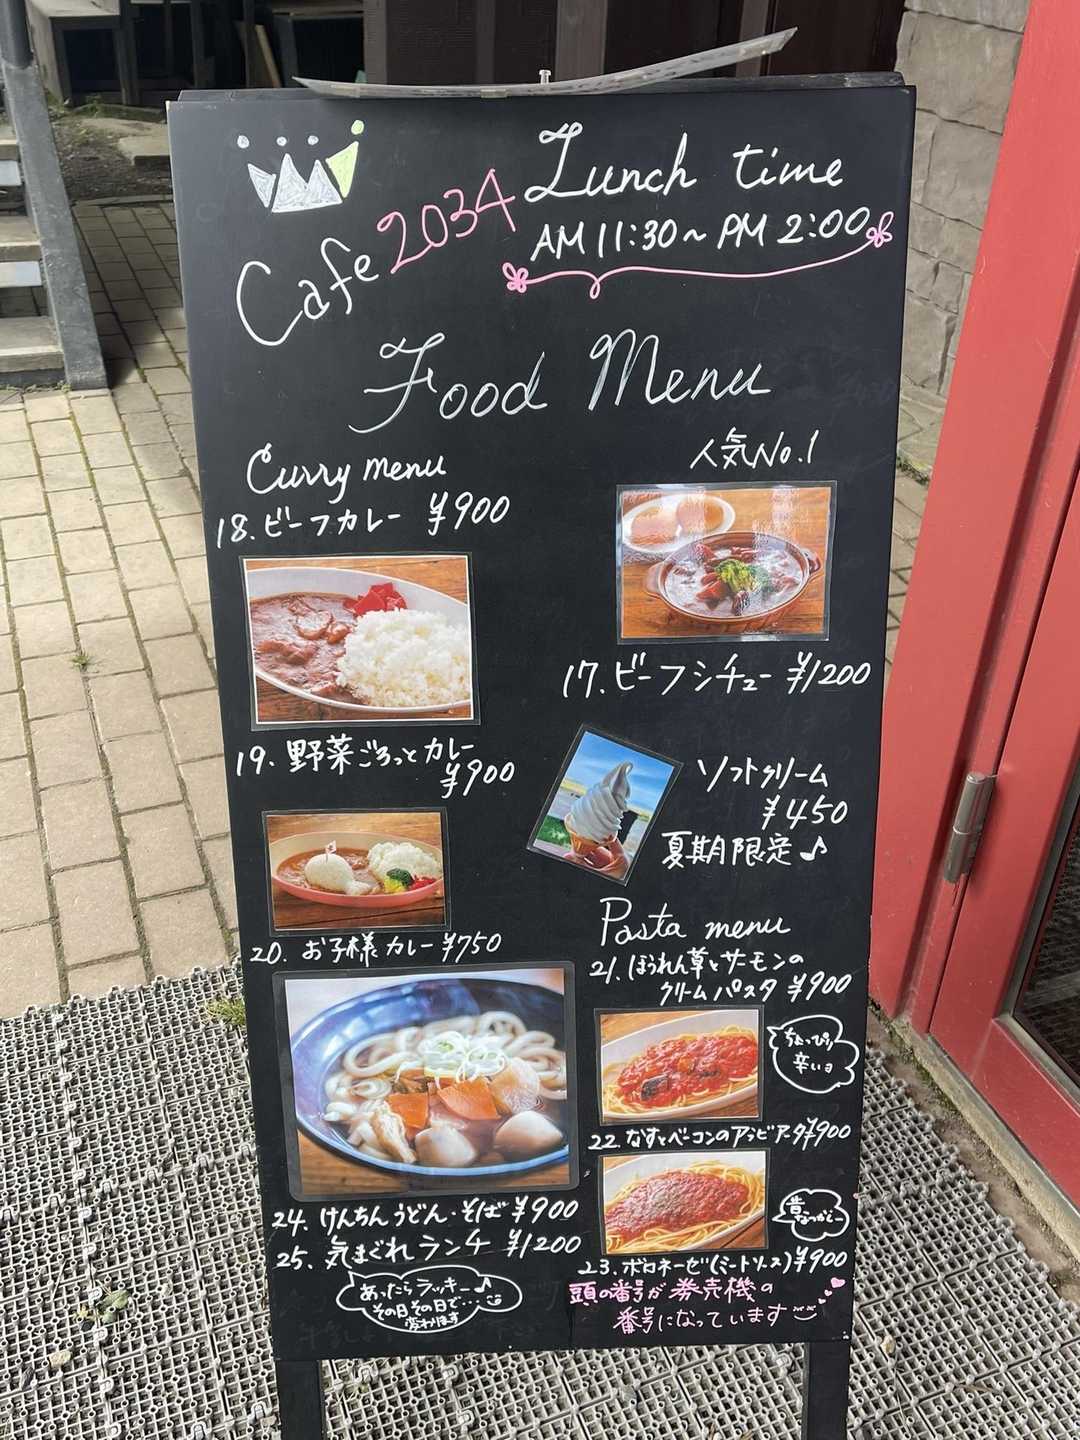 Cafe 2034
Lunch time
AM 11:30~PM 2:00
Food Menu
Curry menu
18.ビーフカレー ¥900
19.野菜ごろっとカレー
¥900
20.お子様カレー ¥750
24.けんちんうどん・そば ¥900
25.気まぐれランチ ¥1200
あたったらラッキー♪
その日その日で...
変わります
人気No.1
17.ビーフシチュー ¥1200
ソフトクリーム
¥450
夏期限定♪
Pasta menu
21.ほうれん草とサーモンの
クリームパスタ ¥900
ちょっぴり
辛いョ
22.なすとベーコンのアラビアータ ¥900
昔なつかし
23.ボロネーゼ(ミートソース) ¥900
頭の番号が券売機の
番号になっています